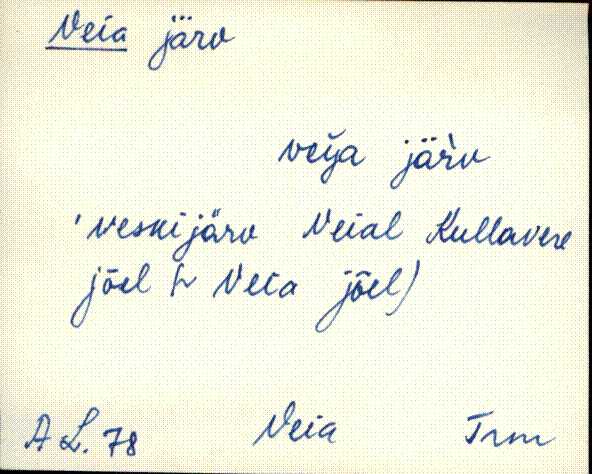 Veia järv
veĭja järv
'veskijärv Veial Kullavere
jõel (~ Veia jõel)
A L. 78 Veia Trm